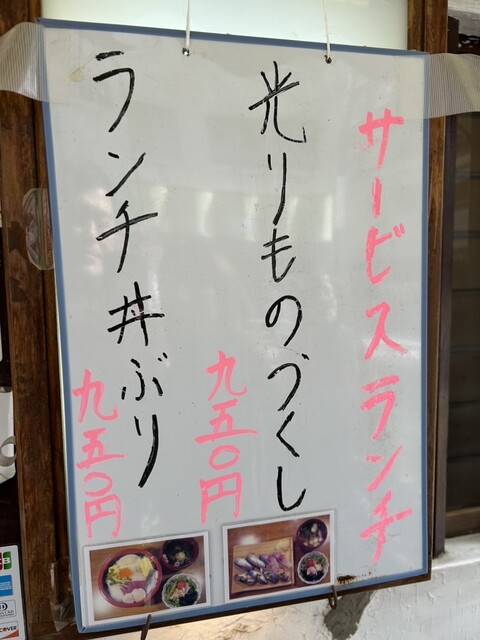 サービスランチ
光りものづくし
九五〇円
ランチ丼ぶり
九五〇円
JCB
DISCOVER